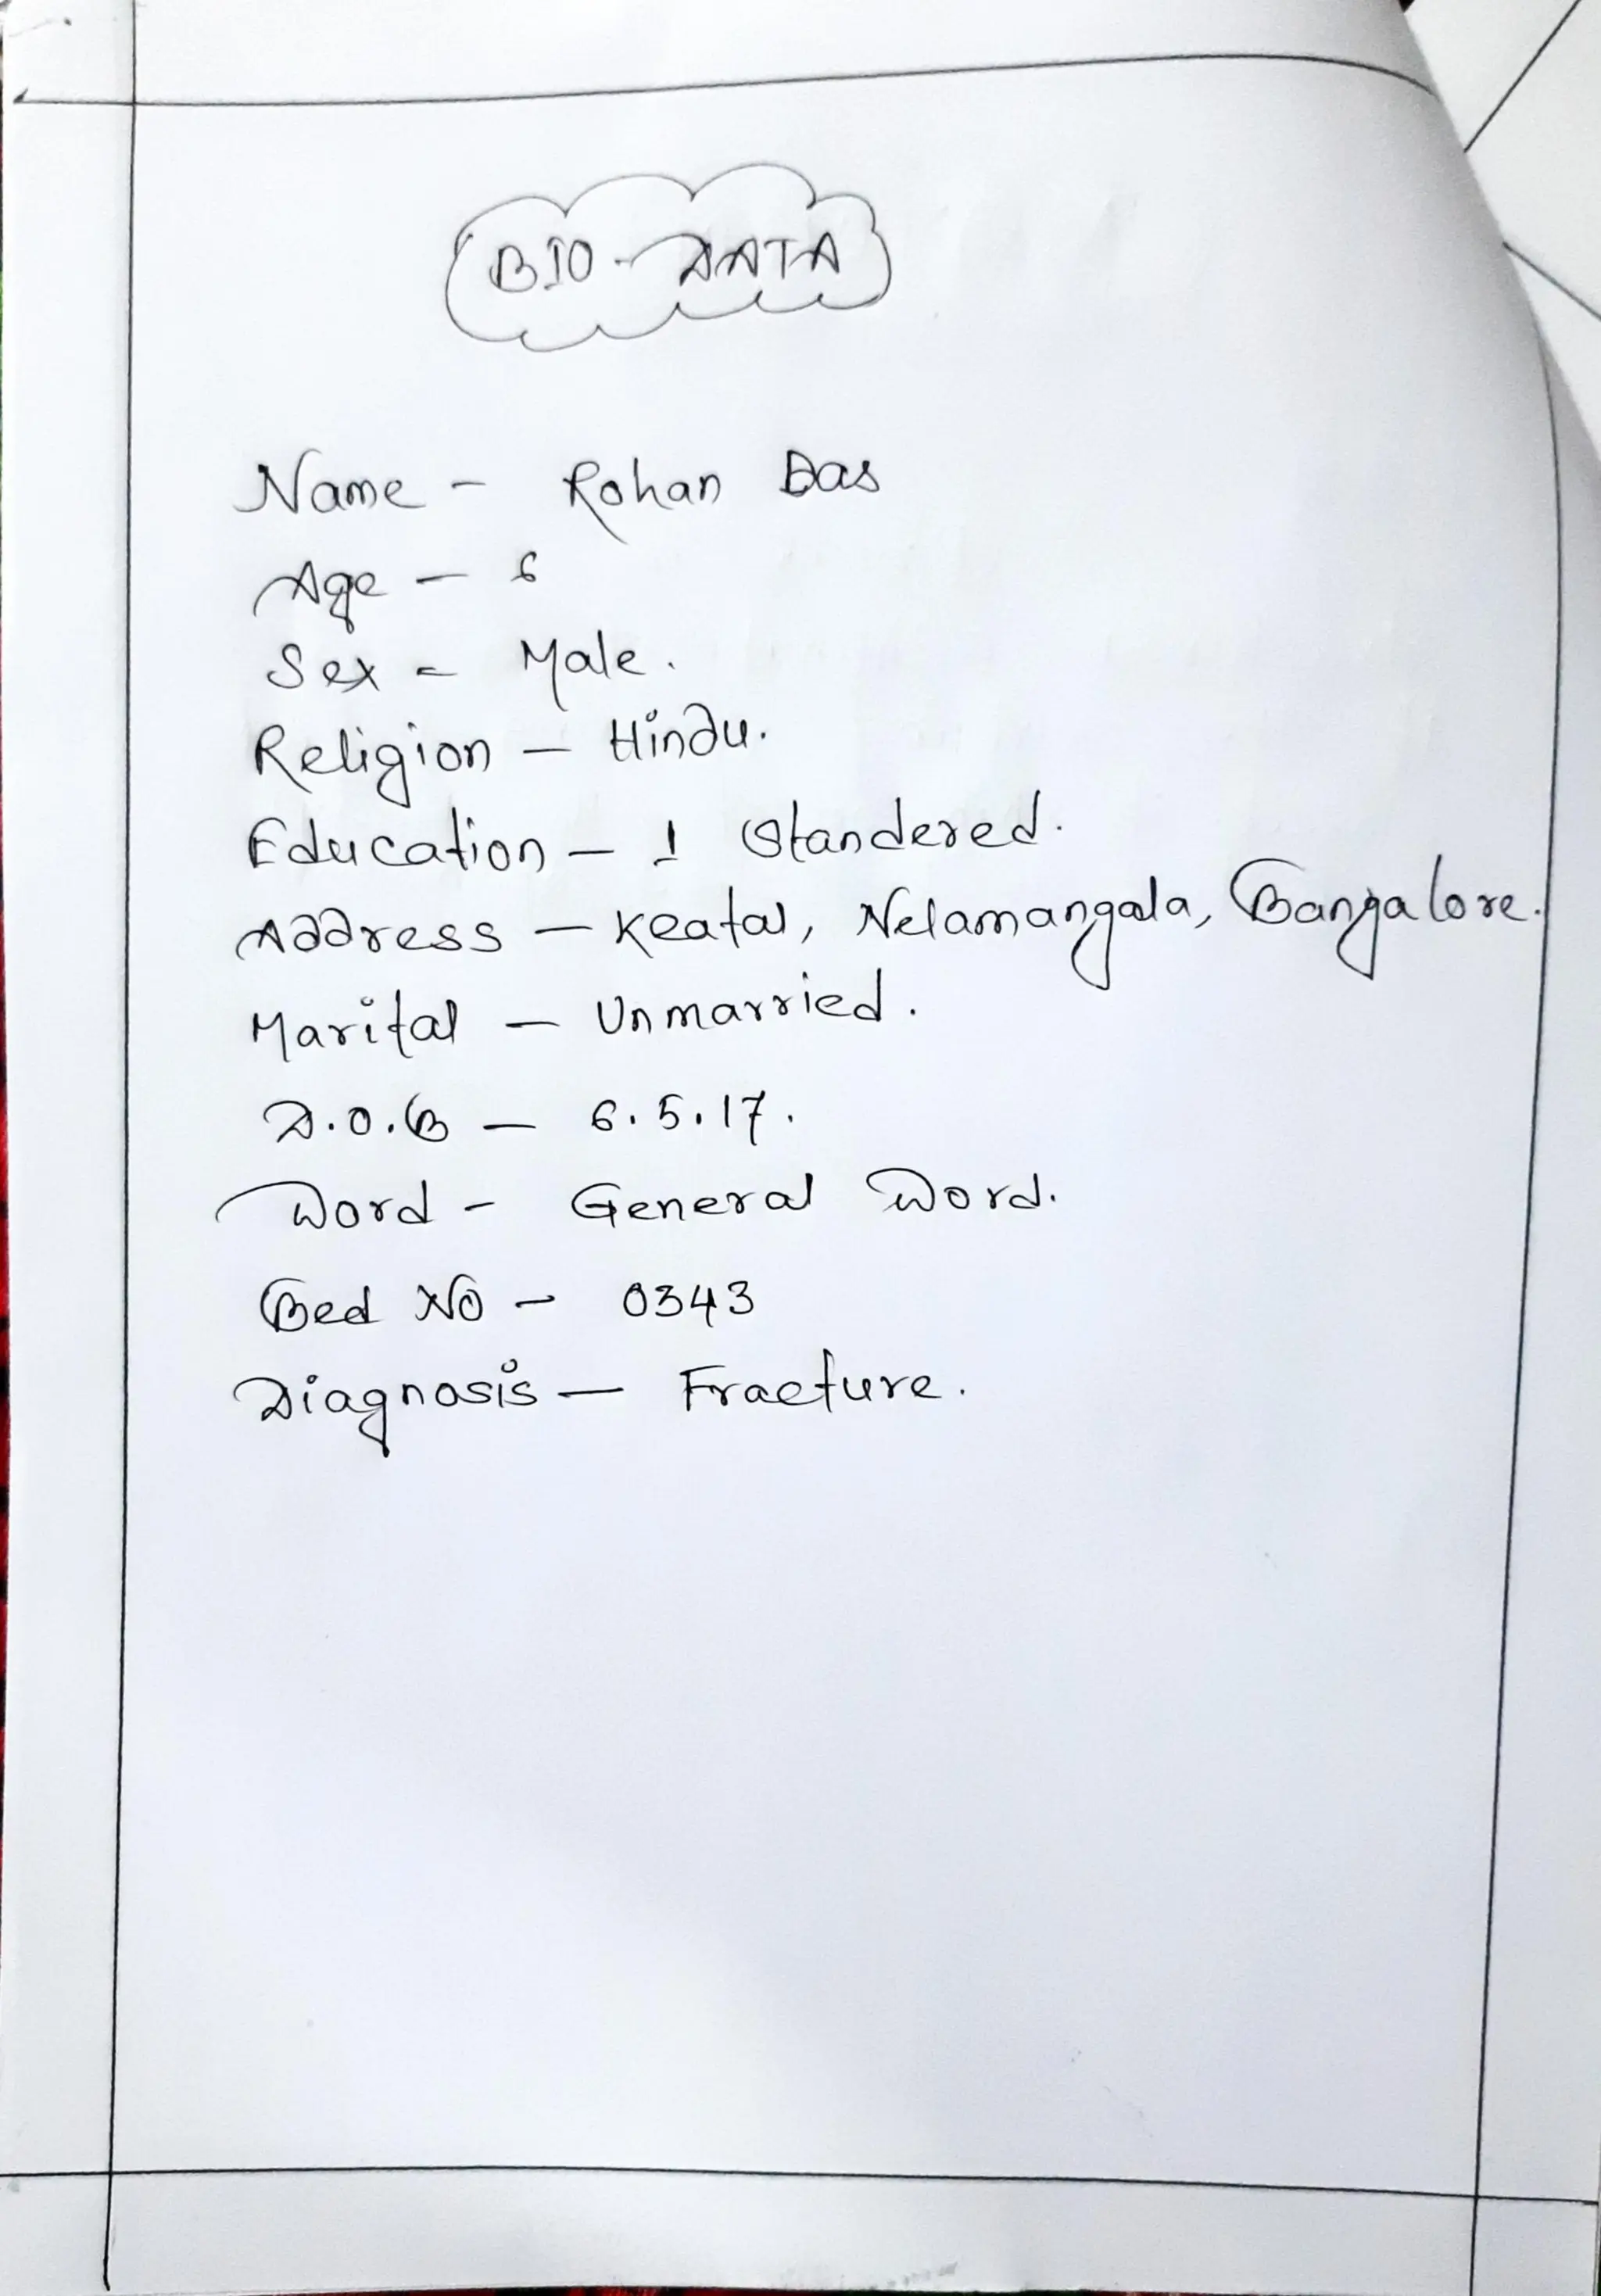 BIO-DATA
Name - Rohan Das
Age - 6
Sex - Male.
Religion - Hindu.
Education - 1 Standered.
Address - Keatal, Nelamangala, Bangalore.
Marital - Unmarried.
D.O.B - 6.5.17.
Word - General Word.
Bed No - 0343
Diagnosis - Fracture.